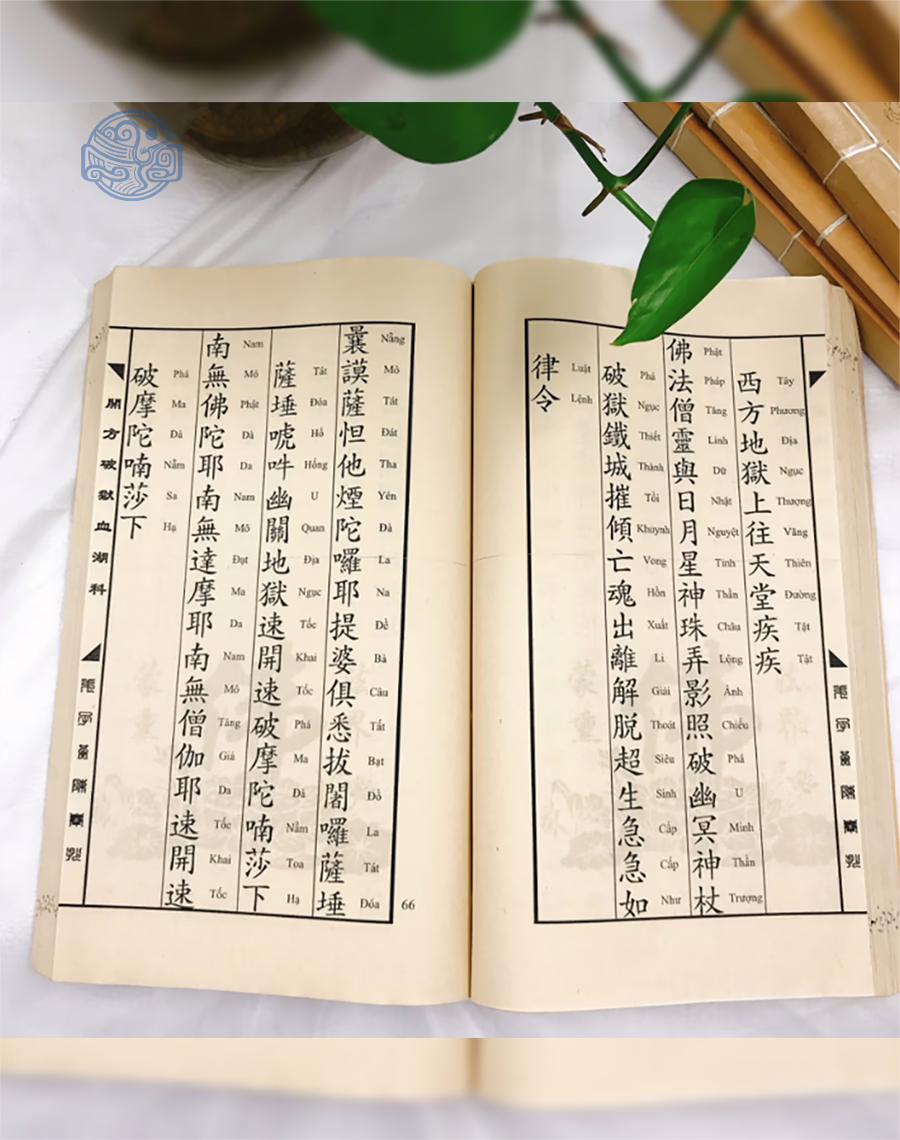 西方地獄上往天堂疾疾
Tây Phương Địa Ngục Thượng Vãng Thiên Đường Tật Tật
佛法僧靈與日月星神珠弄影照破幽冥神杖
Phật Pháp Tăng Linh Dữ Nhật Nguyệt Tinh Thần Châu Lộng Ảnh Chiếu Phá U Minh Thần Trượng
破獄鐵城摧傾亡魂出離解脱超生急急如
Phá Ngục Thiết Thành Tồi Khuynh Vong Hồn Xuất Li Giải Thoát Siêu Sinh Cấp Cấp Như
律令
Luật Lệnh
曩謨薩怛他煙陀囉耶提婆俱悉拔闍囉薩埵
Nẵng Mô Tát Đát Tha Yên Đà La Na Đề Bà Câu Tất Bạt Đồ La Tát Đóa
薩埵唬吽幽關地獄速開速破摩陀喃莎下
Tát Đóa Hổ Hồng U Quan Địa Ngục Tốc Khai Tốc Phá Ma Đá Nẵm Toa Hạ
南無佛陀耶南無達摩耶南無僧伽耶速開速
Nam Mô Phật Đà Da Nam Mô Đạt Ma Da Nam Mô Tăng Già Da Tốc Khai Tốc
破摩陀喃莎下
Phá Ma Đà Nẵm Sa Hạ
開方破獄血湖科
66